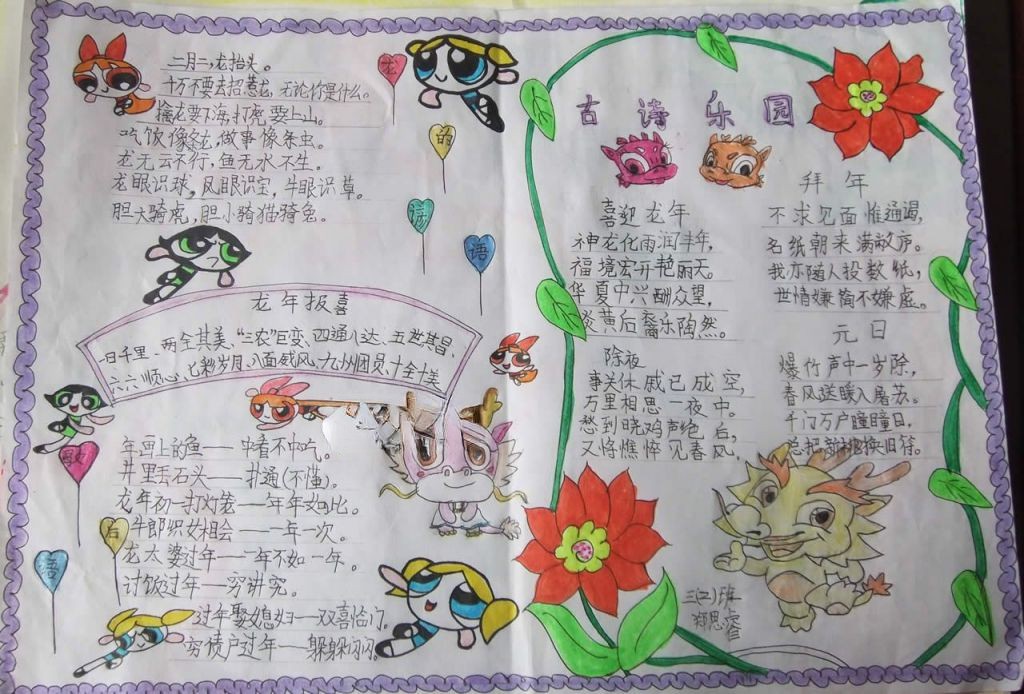 龙的谚语
二月二,龙抬头。
十万不要去招惹龙,无论你是什么。
擒龙要下海,打虎要上山。
吃饭像条龙,做事像条虫。
龙无云不行,鱼无水不生。
龙眼识珠,凤眼识宝,牛眼识草。
胆大骑虎,胆小骑猫骑兔。
龙年报喜
一日千里、两全其美、“三农”巨变、四通八达、五世其昌、
六六顺心、七彩岁月、八面威风、九州团员、十全十美
歇后语
年画上的鱼——中看不中吃。
井里丢石头——扑通(不懂)。
龙年初一打灯笼——年年如此。
牛郎织女相会——一年一次。
龙太婆过年——一年不如一年。
讨饭过年——穷讲究。
过年娶媳妇——双喜临门。
穷债户过年——躲躲闪闪。
古诗乐园
喜迎龙年
神龙化雨润丰年,
福境宏开艳丽天。
华夏中兴酬众望,
炎黄后裔乐陶然。
除夜
事关休戚已成空,
万里相思一夜中。
愁到晓鸡声绝后,
又将憔悴见春风。
拜年
不求见面惟通谒,
名纸朝来满敝庐。
我亦随人投数纸,
世情嫌简不嫌虚。
元日
爆竹声中一岁除,
春风送暖入屠苏。
千门万户曈曈日,
总把新桃换旧符。
三(二)班